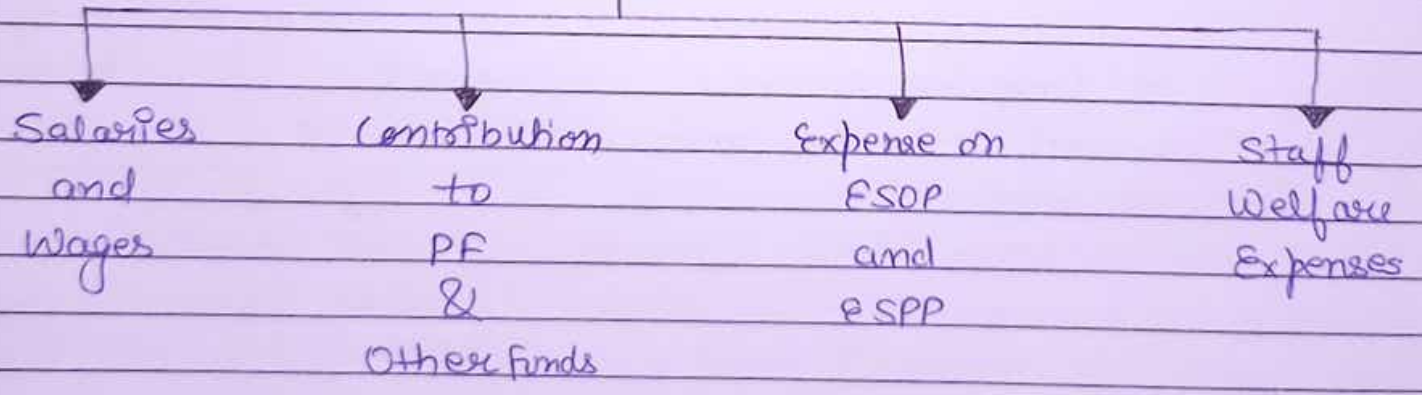 Salaries
and
Wages
Contribution
to
PF
&
Other Funds
Expense on
ESOP
and
ESPP
Staff
Welfare
Expenses